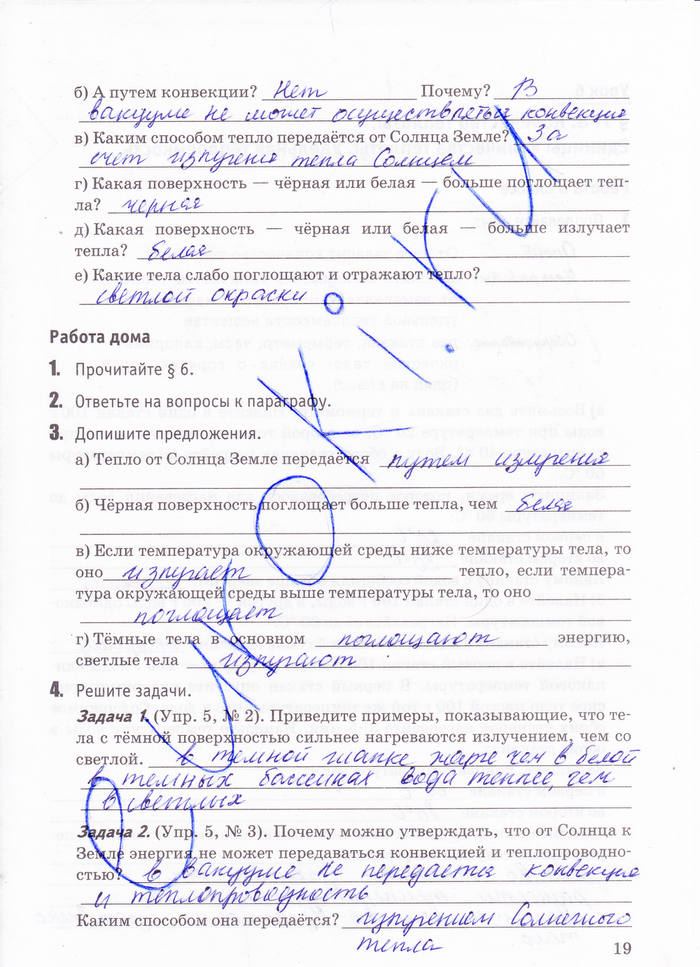 б) А путем конвекции? Нет Почему? В
вакууме не может осуществляться конвекция
в) Каким способом тепло передаётся от Солнца Земле? За
счет излучения тепла Солнцем
г) Какая поверхность — чёрная или белая — больше поглощает теп-
ла? черная
д) Какая поверхность — чёрная или белая — больше излучает
тепла? белая
е) Какие тела слабо поглощают и отражают тепло?
светлой окраски
Работа дома
1. Прочитайте § 6.
2. Ответьте на вопросы к параграфу.
3. Допишите предложения.
а) Тепло от Солнца Земле передаётся путем излучения
б) Чёрная поверхность поглощает больше тепла, чем белая
в) Если температура окружающей среды ниже температуры тела, то
оно излучает тепло, если темпера-
тура окружающей среды выше температуры тела, то оно
поглощает
г) Тёмные тела в основном поглощают энергию,
светлые тела излучают.
4. Решите задачи.
Задача 1. (Упр. 5, № 2). Приведите примеры, показывающие, что те-
ла с тёмной поверхностью сильнее нагреваются излучением, чем со
светлой. в темной шапке жарче чем в белой
в темных бассейнах вода теплее, чем
в светлых
Задача 2. (Упр. 5, № 3). Почему можно утверждать, что от Солнца к
Земле энергия не может передаваться конвекцией и теплопроводно-
стью? в вакууме не передается конвекция
и теплопроводность
Каким способом она передаётся? излучением Солнечного
тепла
19